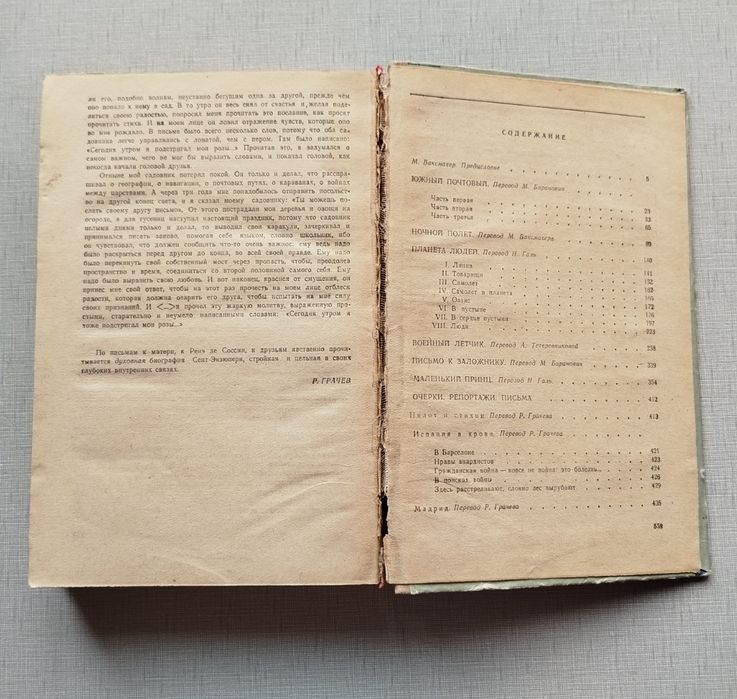 ли его, подобно волнам, неустанно бегущим одна за другой, прежде чем
оно попало к нему в сад. В то утро он весь сиял от счастья и, желая поде-
литься своею радостью, попросил меня прочитать это послание, как просят
прочитать стихи. И на моем лице он ловил отражение чувств, которые оно
во мне рождало. В письме было всего несколько слов, потому что оба са-
довника легко управлялись с лопатой, чем с пером. Там было написано:
«Сегодня утром я подстригал мои розы..» Прочитав это, я задумался о
самом важном, чего не мог бы выразить словами, и покачал головой, как
некогда качали головой друзья.
Отныне мой садовник потерял покой. Он только и делал, что расспра-
шивал о географии, о навигации, о почтовых путях, о караванах, о войнах
между царствами. А через три года мне понадобилось отправить посольст-
во на другой конец света, и я сказал моему садовнику: «Ты можешь по-
слать своему другу письмо». От этого пострадали мои деревья и овощи на
огороде, а для гусениц наступил настоящий праздник, потому что садовник
целыми днями только и делал, то выводил свои каракули, зачеркивал и
принимался писать заново, помогая себе языком, словно школьник, ибо
он чувствовал, что должен сообщить что-то очень важное: ему ведь надо
было раскрыться перед другом до конца, во всей своей правде. Ему надо
было перекинуть свой собственный мост через пропасть, чтобы, преодолев
пространство и время, соединиться со второй половиной самого себя. Ему
надо было выразить свою любовь. И вот наконец, краснея от смущения, он
принес мне свой ответ, чтобы на этот раз прочесть на моем лице отблеск
радости, которая должна озарить его друга, чтобы испытать на мне силу
своих признаний. И <...> я прочел эту жаркую молитву, выраженную про-
стыми, старательно и неумело написанными словами: «Сегодня утром я
тоже подстригал мои розы...»
По письмам к матери, к Ренэ де Соссин, к друзьям явственно прочи-
тывается духовная биография Сент-Экзюпери, стройная и цельная в своих
глубоких внутренних связях.
Р. ГРАЧЕВ
СОДЕРЖАНИЕ
М. Ваксмахер. Предисловие 5
ЮЖНЫЙ ПОЧТОВЫЙ. Перевод М. Баранович
Часть первая 23
Часть вторая 33
Часть третья 65
НОЧНОЙ ПОЛЕТ. Перевод М. Ваксмахера 89
ПЛАНЕТА ЛЮДЕЙ. Перевод Н. Галь 140
I. Линия 141
II. Товарищи 152
III. Самолет 162
IV. Самолет и планета 165
V. Оазис 172
VI. В пустыне 176
VII. В сердце пустыни 197
VIII. Люди 223
ВОЕННЫЙ ЛЕТЧИК. Перевод А. Тетеревниковой 238
ПИСЬМО К ЗАЛОЖНИКУ. Перевод М. Баранович 339
МАЛЕНЬКИЙ ПРИНЦ. Перевод Н. Галь 354
ОЧЕРКИ. РЕПОРТАЖИ. ПИСЬМА 412
Пилот и стихии Перевод Р. Грачева 413
Испания в крови. Перевод Р. Грачева
В Барселоне 421
Нравы анархистов 423
Гражданская война — вовсе не война: это болезнь 424
В поисках войны 426
Здесь расстреливают, словно лес вырубают 429
Мадрид. Перевод Р. Грачева 435